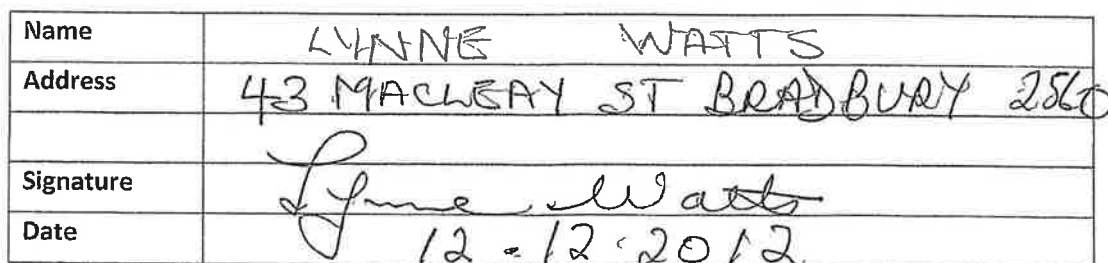 Name LYNNE WATTS
Address 43 MACLEAY ST BRADBURY 2560
Signature Lynne Watts
Date 12-12-2012